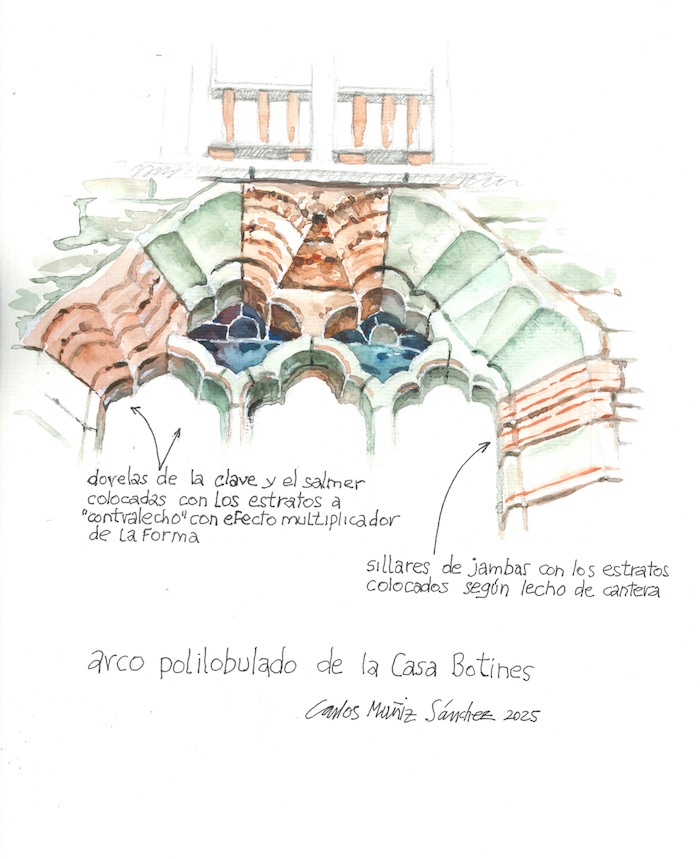 dovelas de la clave y el salmer
colocadas con los estratos a
"contralecho" con efecto multiplicador
de la forma
sillares de jambas con los estratos
colocados según lecho de cantera
arco polilobulado de la Casa Botines
Carlos Muñiz Sánchez 2025